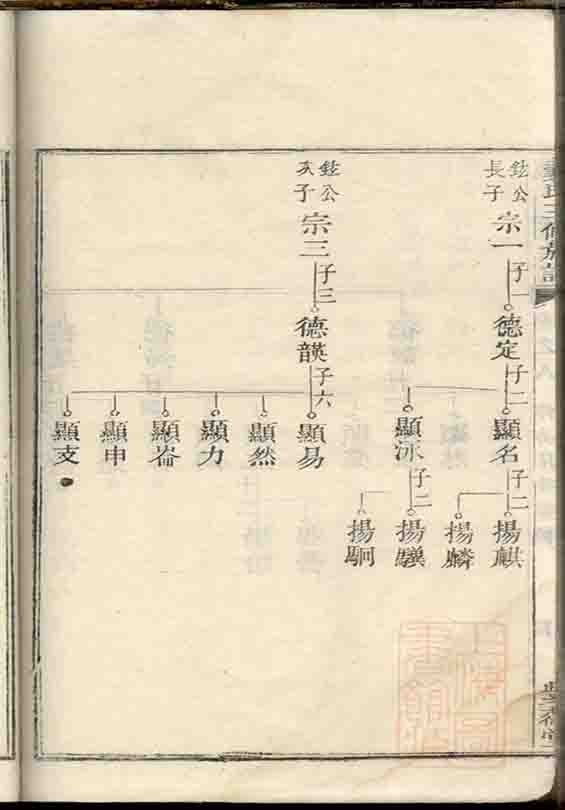 鉉公
長子
宗一
子一
德定
子二
顯名
子二
揚麒
揚麟
顯泳
子二
揚驥
揚駉
鉉公
次子
宗三
子三
德韺
子六
顯易
顯然
顯力
顯崙
顯申
顯支